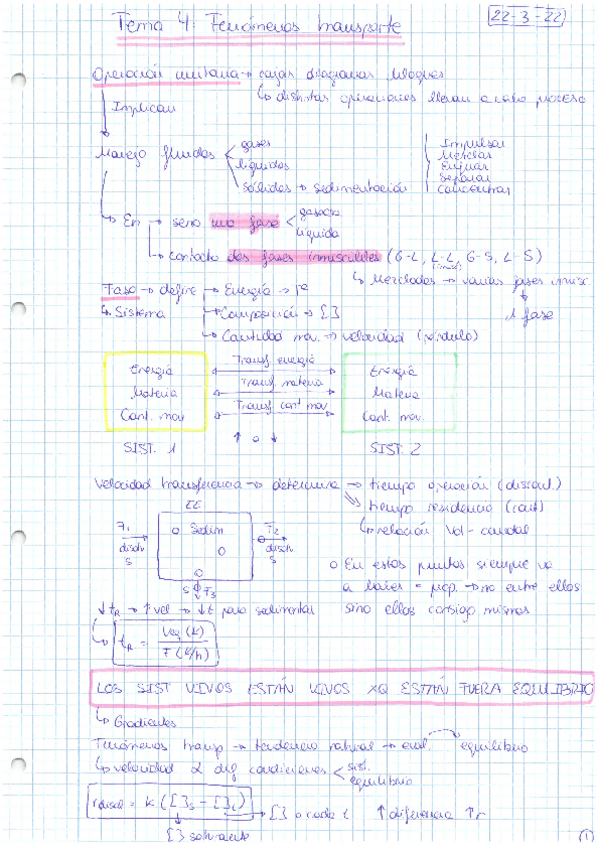 22-3-22
Tema 4: Fenómenos transporte
Operación unitaria → cajas diagramas bloques
↳ distintas operaciones llevan a cabo proceso
Implican
Manejo fluidos
gases
líquidos
sólidos → sedimentación
Impulsar
Mezclar
Enfriar
Separar
Concentrar
↳ En → seno una fase
gaseosa
líquida
↳ contacto dos fases inmiscibles (G-L, L-L, G-S, L-S)
↳ Mezclados → varias fases inmisc.
1 fase
Fase → define → Energía → Tª
↳ Sistema
↳ Composición → [ ]
↳ Cantidad mov. → velocidad (módulo)
Energía
Materia
Cant. mov
Transf. energía
Transf materia
Transf cant mov
Energía
Materia
Cant. mov.
SIST. 1
↑ o ↓
SIST. 2
Velocidad transferencia → determina → tiempo operación (discont.)
tiempo residencia (cont)
↳ relación Vol - caudal
EE
F1
disolv
S
Sedim
F2
disolv
S
S F3
o En estos puntos siempre va
a haber = prop. → no entre ellos
sino ellos consigo mismos
↓ tR → ↑ vel → ↓ t para sedimentar
↳ tR = Veq (L) / F (L/h)
LOS SIST VIVOS ESTÁN VIVOS XQ ESTÁN FUERA EQUILIBRIO
↳ Gradientes
Fenómenos transp → tendencia natural → evol. equilibrio
↳ velocidad α dif condiciones
sist.
equilibrio
rdisol = K ([ ]s - [ ]L)
→ [ ] a cada t
↑ diferencia ↑ r
1